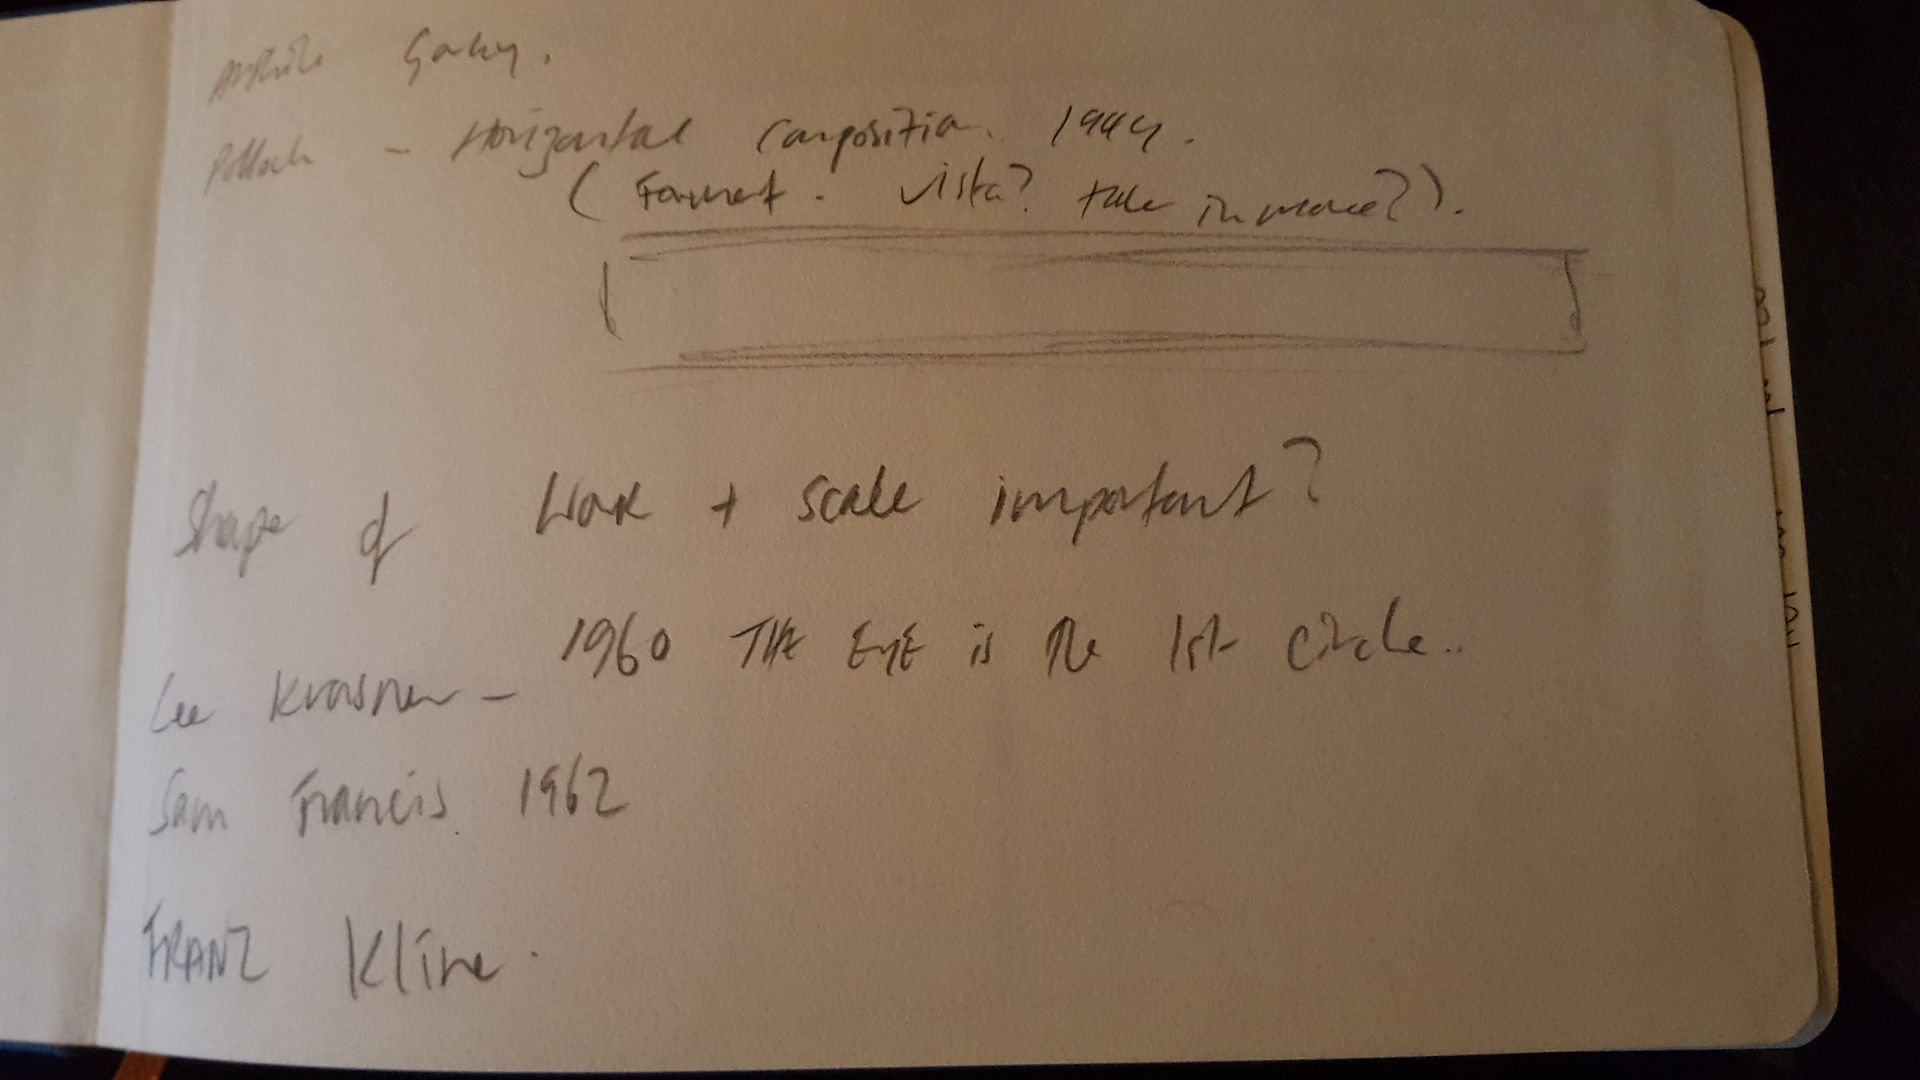 Gorky.
Pollock - Horizontal Composition. 1949.
(Format. Vista? take in more?).
Shape of work + scale important?
Lee Krasner - 1960 THE EYE is the 1st circle..
Sam Francis 1962
FRANZ Kline.